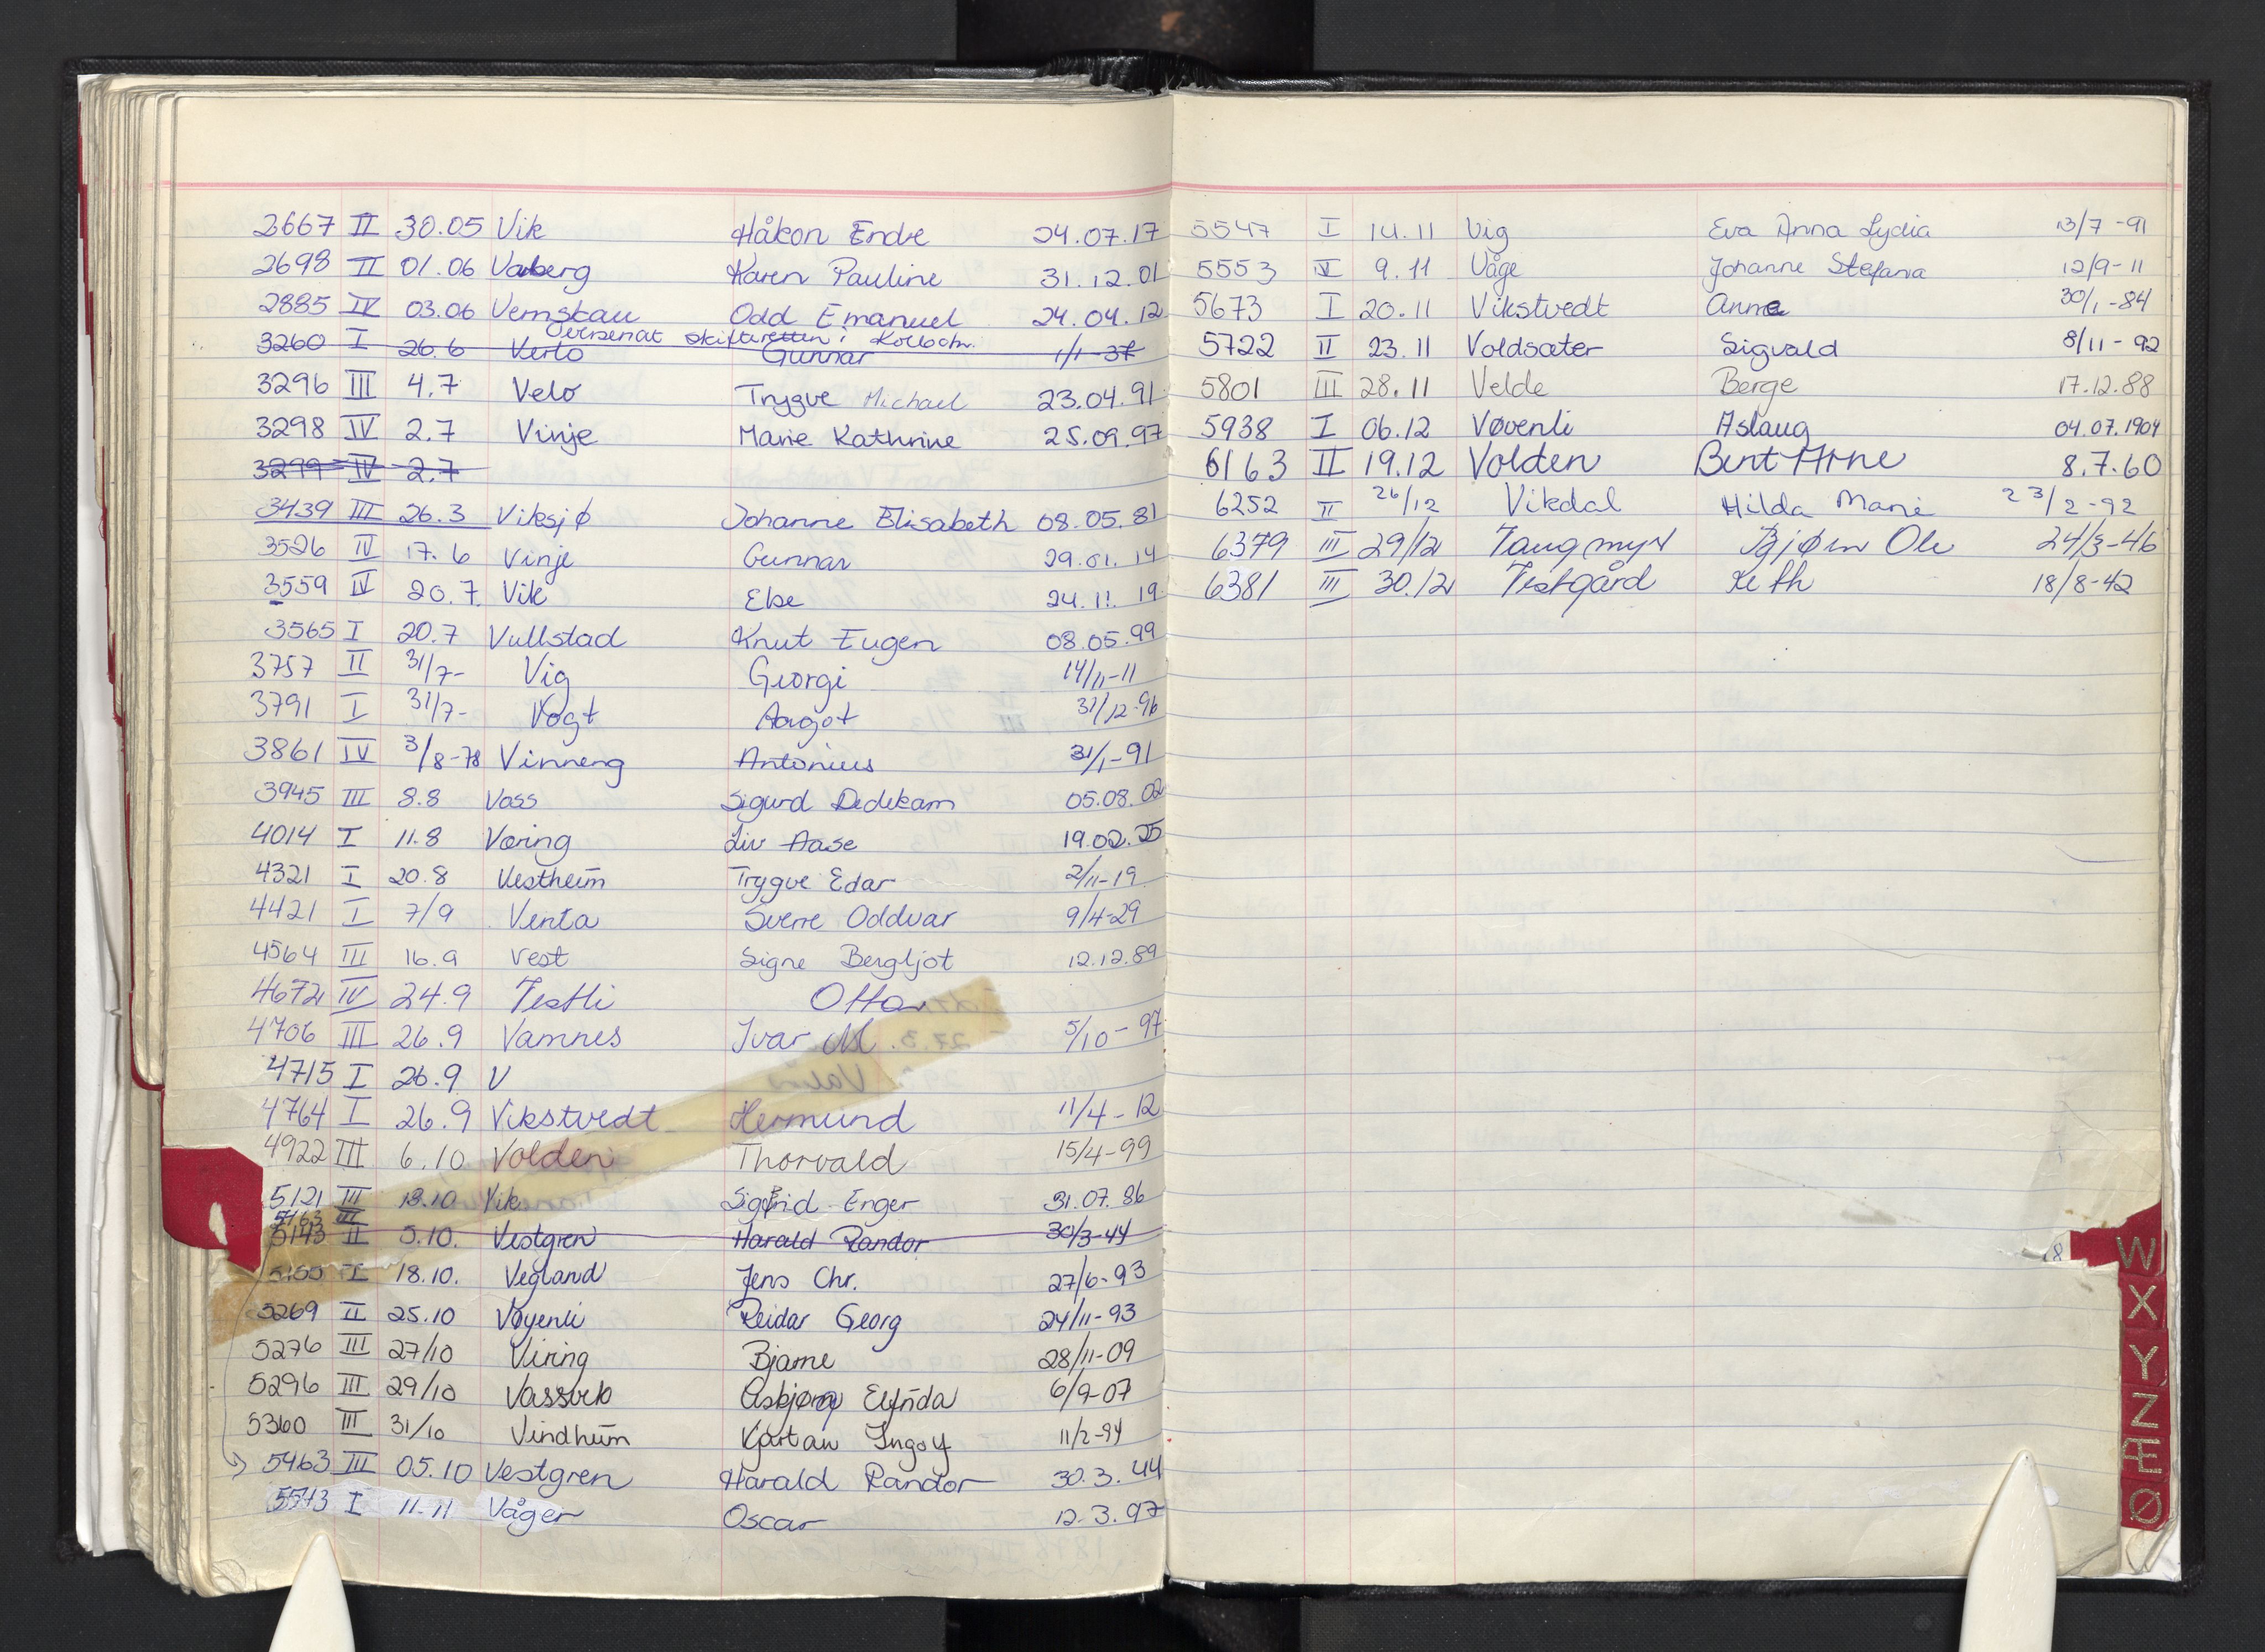 2667 II 30.05 Vik Håkon Endre 24.07.17
2698 II 01.06 Varberg Karen Pauline 31.12.01
2885 IV 03.06 Vemskau Odd Emanuel 24.04.12
Oversendt skifteretten i
3260 I 26.6 Verlo Gunnar 1/1-37
3296 III 4.7 Velo Trygve Michael 23.04.91
3298 IV 2.7 Vinje Marie Kathrine 25.09.97
3299 IV 2.7
3439 III 26.3 Viksjø Johanne Elisabeth 08.05.81
3526 IV 17.6 Vinje Gunnar 29.01.14
3559 IV 20.7 Vik Else 24.11.19
3565 I 20.7 Vullstad Knut Eugen 08.05.99
3757 II 31/7- Vig Georgi 14/11-11
3791 I 31/7- Vogt Aagot 31/12-96
3861 IV 3/8-78 Vinneng Antonius 31/1-91
3945 III 8.8 Voss Sigurd Dedekam 05.08.02
4014 I 11.8 Væring Liv Aase 19.02.25
4321 I 20.8 Vestheim Trygve Edar 2/11-19
4421 I 7/9 Venta Sverre Oddvar 9/4-29
4564 III 16.9 Vest Signe Bergljot 12.12.89
4672 IV 24.9 Vestli Ottar
4706 III 26.9 Vamnes Ivar M. 5/10-97
4715 I 26.9 V
4764 I 26.9 Vikstvedt Hermund 11/4-12
4922 III 6.10 Volden Thorvald 15/4-99
5121 III 13.10 Vik Sigrid Enger 31.07.86
5463 III
5143 II 5.10. Vestgren Harald Randor 30/3-44
I 18.10. Vegland Jens Chr. 27/6-93
5269 II 25.10 Vøyenli Reidar Georg 24/11-93
5276 III 27/10 Viring Bjarne 28/11-09
5296 III 29/10 Vassvik Asbjørg Elfrida 6/9-07
5360 III 31/10 Vindheim Kjartan Ingolf 11/2-94
5463 III 05.10 Vestgren Harald Randor 30.3.44
5513 I 11.11 Våger Oscar 12.3.97
5547 I 14.11 Vig Eva Anna Lydia 13/7-91
5553 IV 9.11 Våge Johanne Stefana 12/9-11
5673 I 20.11 Vikstvedt Anne 30/1-84
5722 II 23.11 Voldsæter Sigvald 8/11-92
5801 III 28.11 Velde Berge 17.12.88
5938 I 06.12 Vøvenli Aslaug 04.07.1904
6163 II 19.12 Volden Bent Arne 8.7.60
6252 II 26/12 Vikdal Hilda Marie 23/2-92
6379 III 29/12 Vangmyr Bjørn Ole 24/3-46
6381 III 30/12 Vestgård Keth 18/8-42
W
X
Y
Z
Æ
Ø